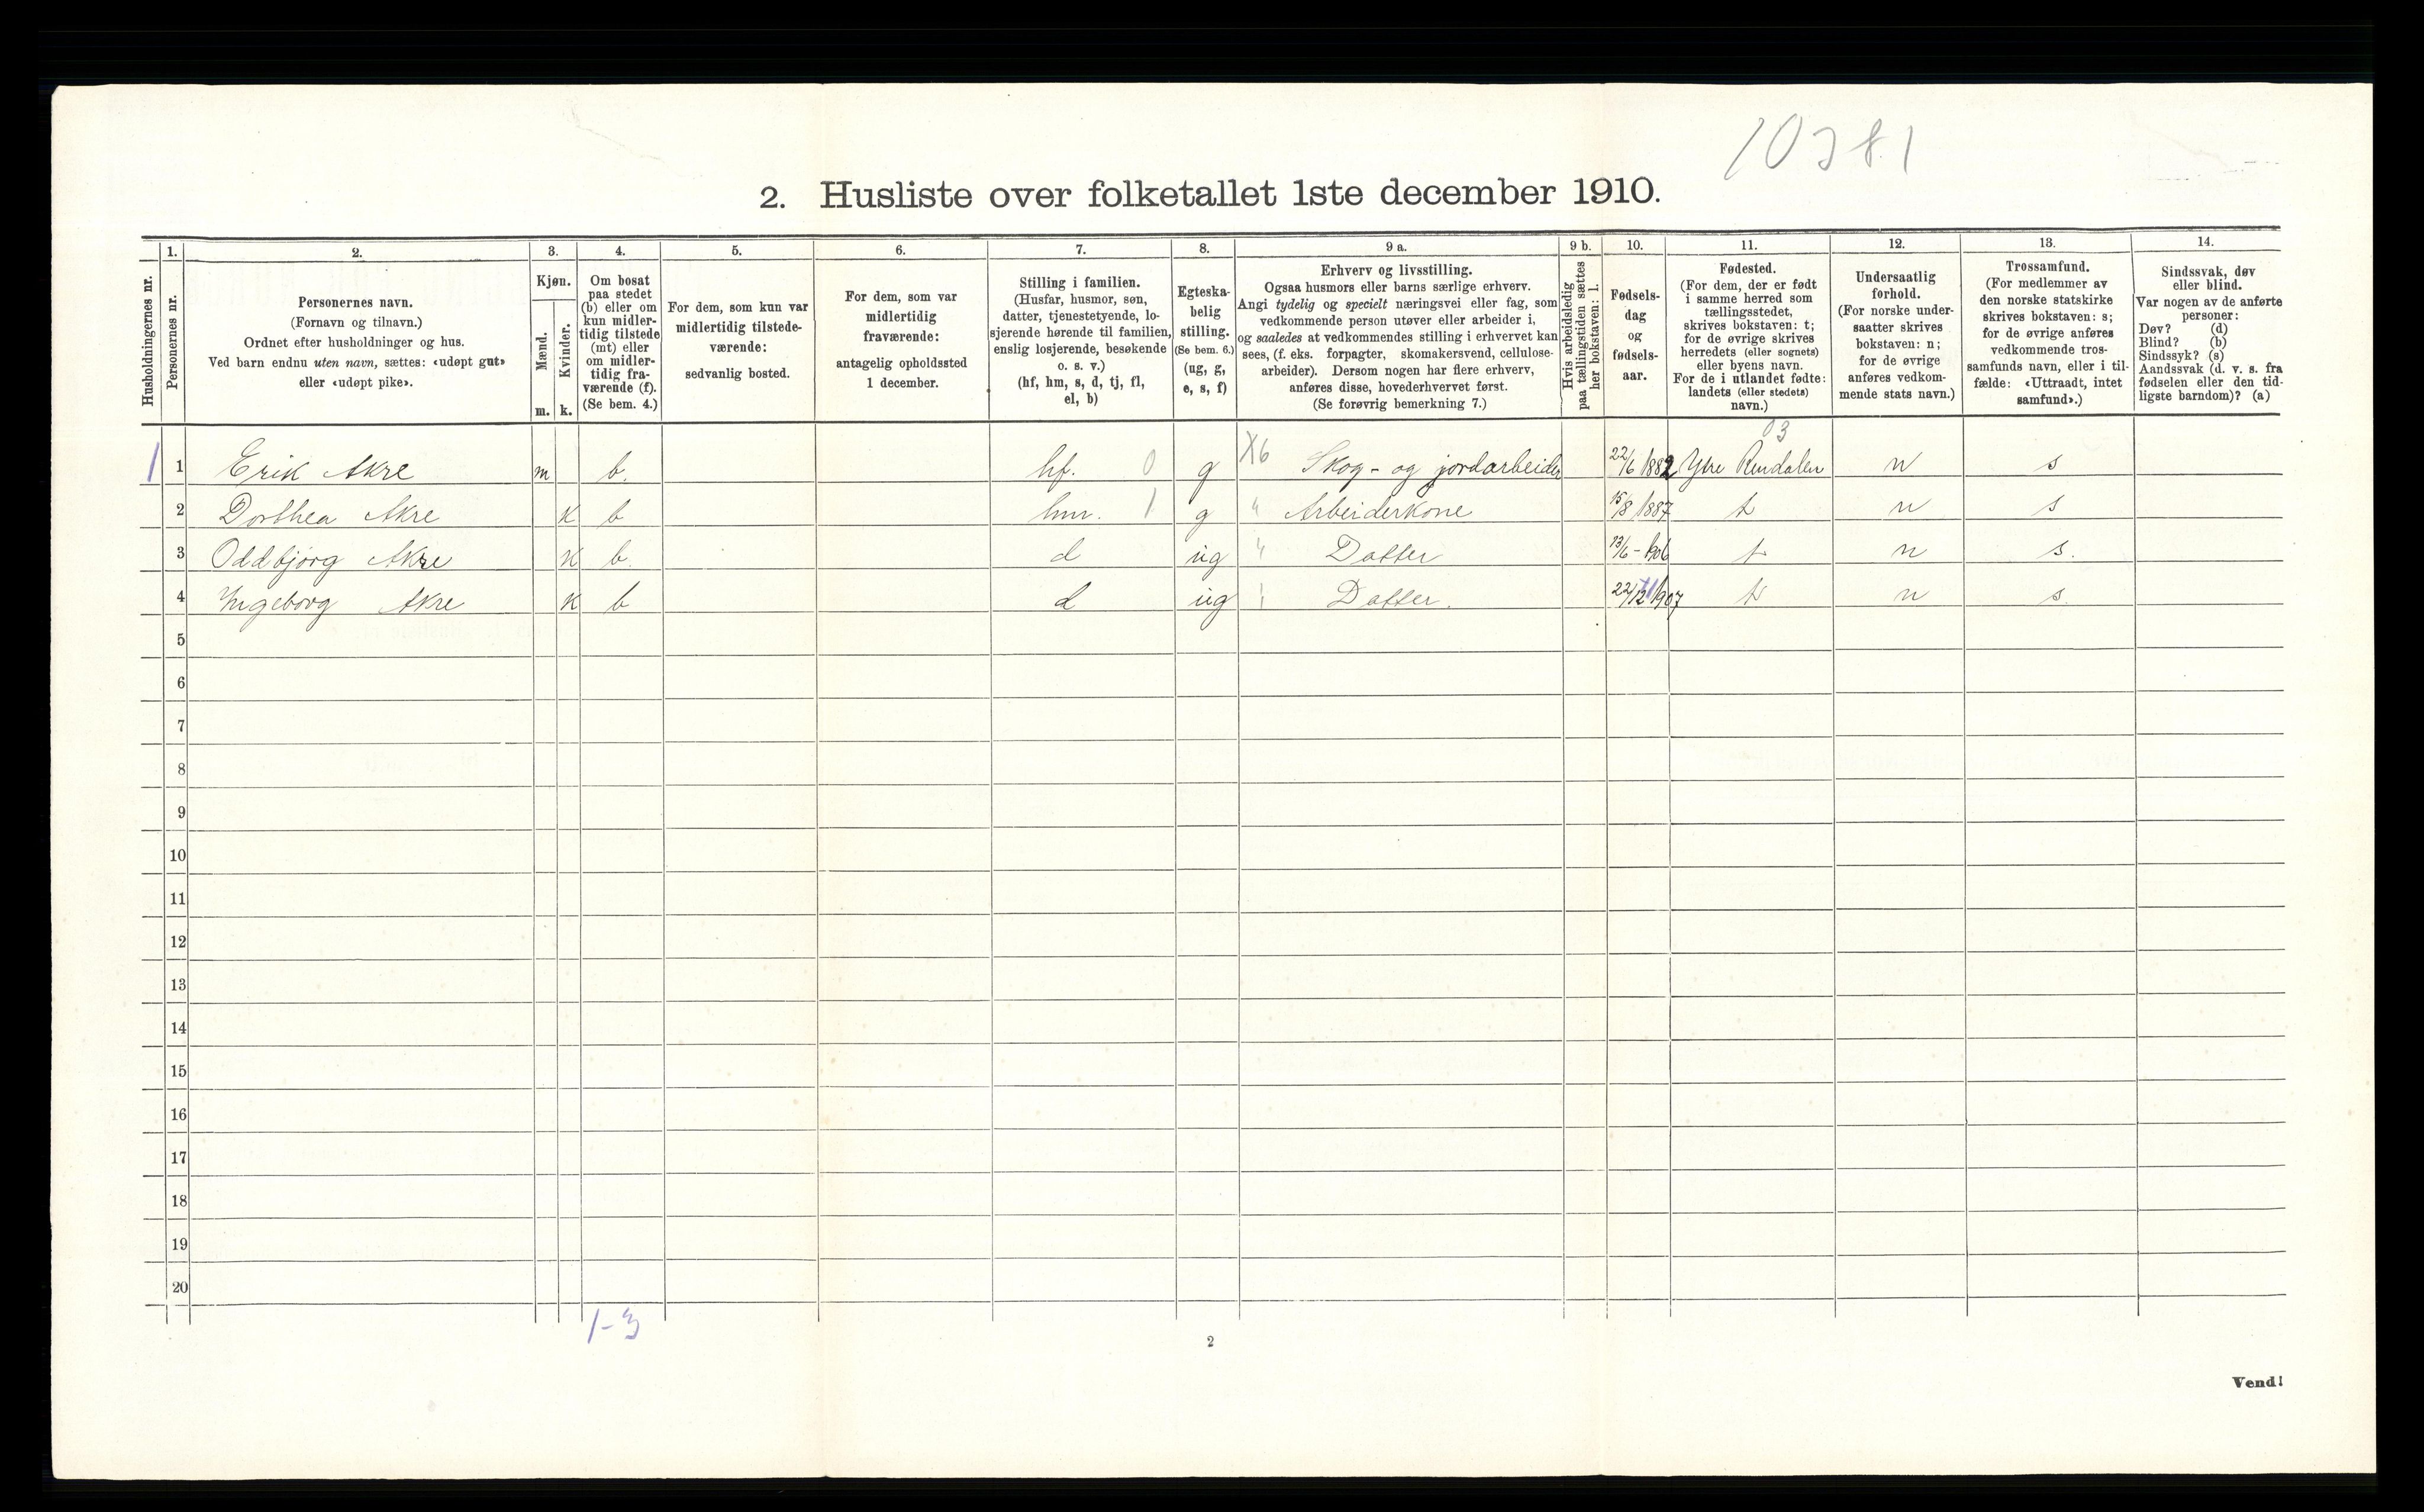 10781
2. Husliste over folketallet 1ste december 1910.
Husholdningernes nr.
1.
Personernes nr.
2.
Personernes navn.
(Fornavn og tilnavn.)
Ordnet efter husholdninger og hus.
Ved barn endnu uten navn, sættes: «udøpt gut»
eller «udøpt pike».
3.
Kjøn.
Mænd.
Kvinder.
m. k.
4.
Om bosat
paa stedet
(b) eller om
kun midler-
tidig tilstede
(mt) eller
om midler-
tidig fra-
værende (f).
(Se bem. 4.)
5.
For dem, som kun var
midlertidig tilstede-
værende:
sedvanlig bosted.
6.
For dem, som var
midlertidig
fraværende:
antagelig opholdssted
1 december.
7.
Stilling i familien.
(Husfar, husmor, søn,
datter, tjenestetyende, lo-
sjerende hørende til familien,
enslig losjerende, besøkende
o. s. v.)
(hf, hm, s, d, tj, fl,
el, b)
8.
Egteska-
belig
stilling.
(Se bem. 6.)
(ug, g,
e, s, f)
9 a.
Erhverv og livsstilling.
Ogsaa husmors eller barns særlige erhverv.
Angi tydelig og specielt næringsvei eller fag, som
vedkommende person utøver eller arbeider i,
og saaledes at vedkommendes stilling i erhvervet kan
sees, (f. eks. forpagter, skomakersvend, cellulose-
arbeider). Dersom nogen har flere erhverv,
anføres disse, hovederhvervet først.
(Se forøvrig bemerkning 7.)
9 b.
Hvis arbeidsledig
paa tællingstiden sættes
her bokstaven: l.
10.
Fødsels-
dag
og
fødsels-
aar.
11.
Fødested.
(For dem, der er født
i samme herred som
tællingsstedet,
skrives bokstaven: t;
for de øvrige skrives
herredets (eller sognets)
eller byens navn.
For de i utlandet fødte:
landets (eller stedets)
navn.)
12.
Undersaatlig
forhold.
(For norske under-
saatter skrives
bokstaven: n;
for de øvrige
anføres vedkom-
mende stats navn.)
13.
Trossamfund.
(For medlemmer av
den norske statskirke
skrives bokstaven: s;
for de øvrige anføres
vedkommende tros-
samfunds navn, eller i til-
fælde: «Uttraadt, intet
samfund».)
14.
Sindssvak, døv
eller blind.
Var nogen av de anførte
personer:
Døv? (d)
Blind? (b)
Sindssyk? (s)
Aandssvak (d. v. s. fra
fødselen eller den tid-
ligste barndom)? (a)
03
1 1 Erik Akre m b. hf. 0 g X6 Skog- og jordarbeider 22/6 1882 Ytre Rendalen n s
2 Dorthea Akre k b hm. 1 g " Arbeiderkone 15/8 1887 t n s
3 Oddbjørg Akre k b. d ug " Datter 13/6 - 1906 t n s.
4 Ingeborg Akre k b d ug " Datter. 22/12 1907 t n s.
5
6
7
8
9
10
11
12
13
14
15
16
17
18
19
20
1-3
2
Vend!